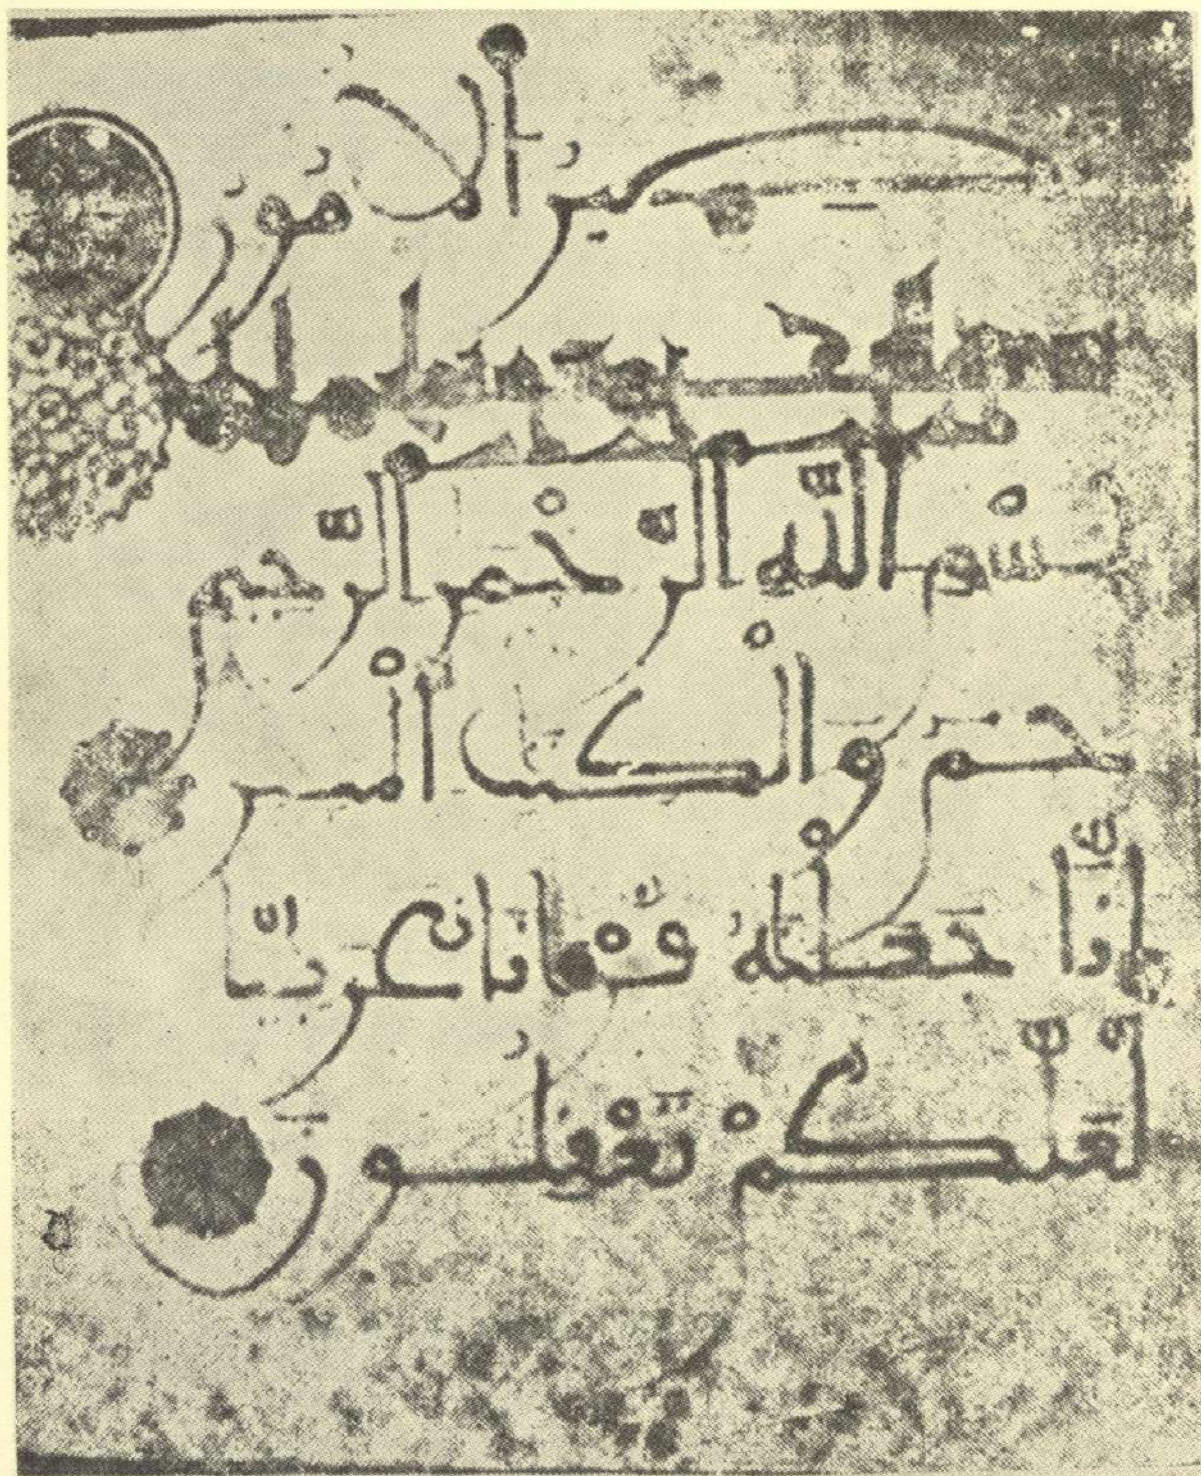 تصير الامور
بسم الله الرحمن الرحيم
حم والكتب المبين
إنّا جعلنه قرانا عربيّا
لّعلّكم تعقلون